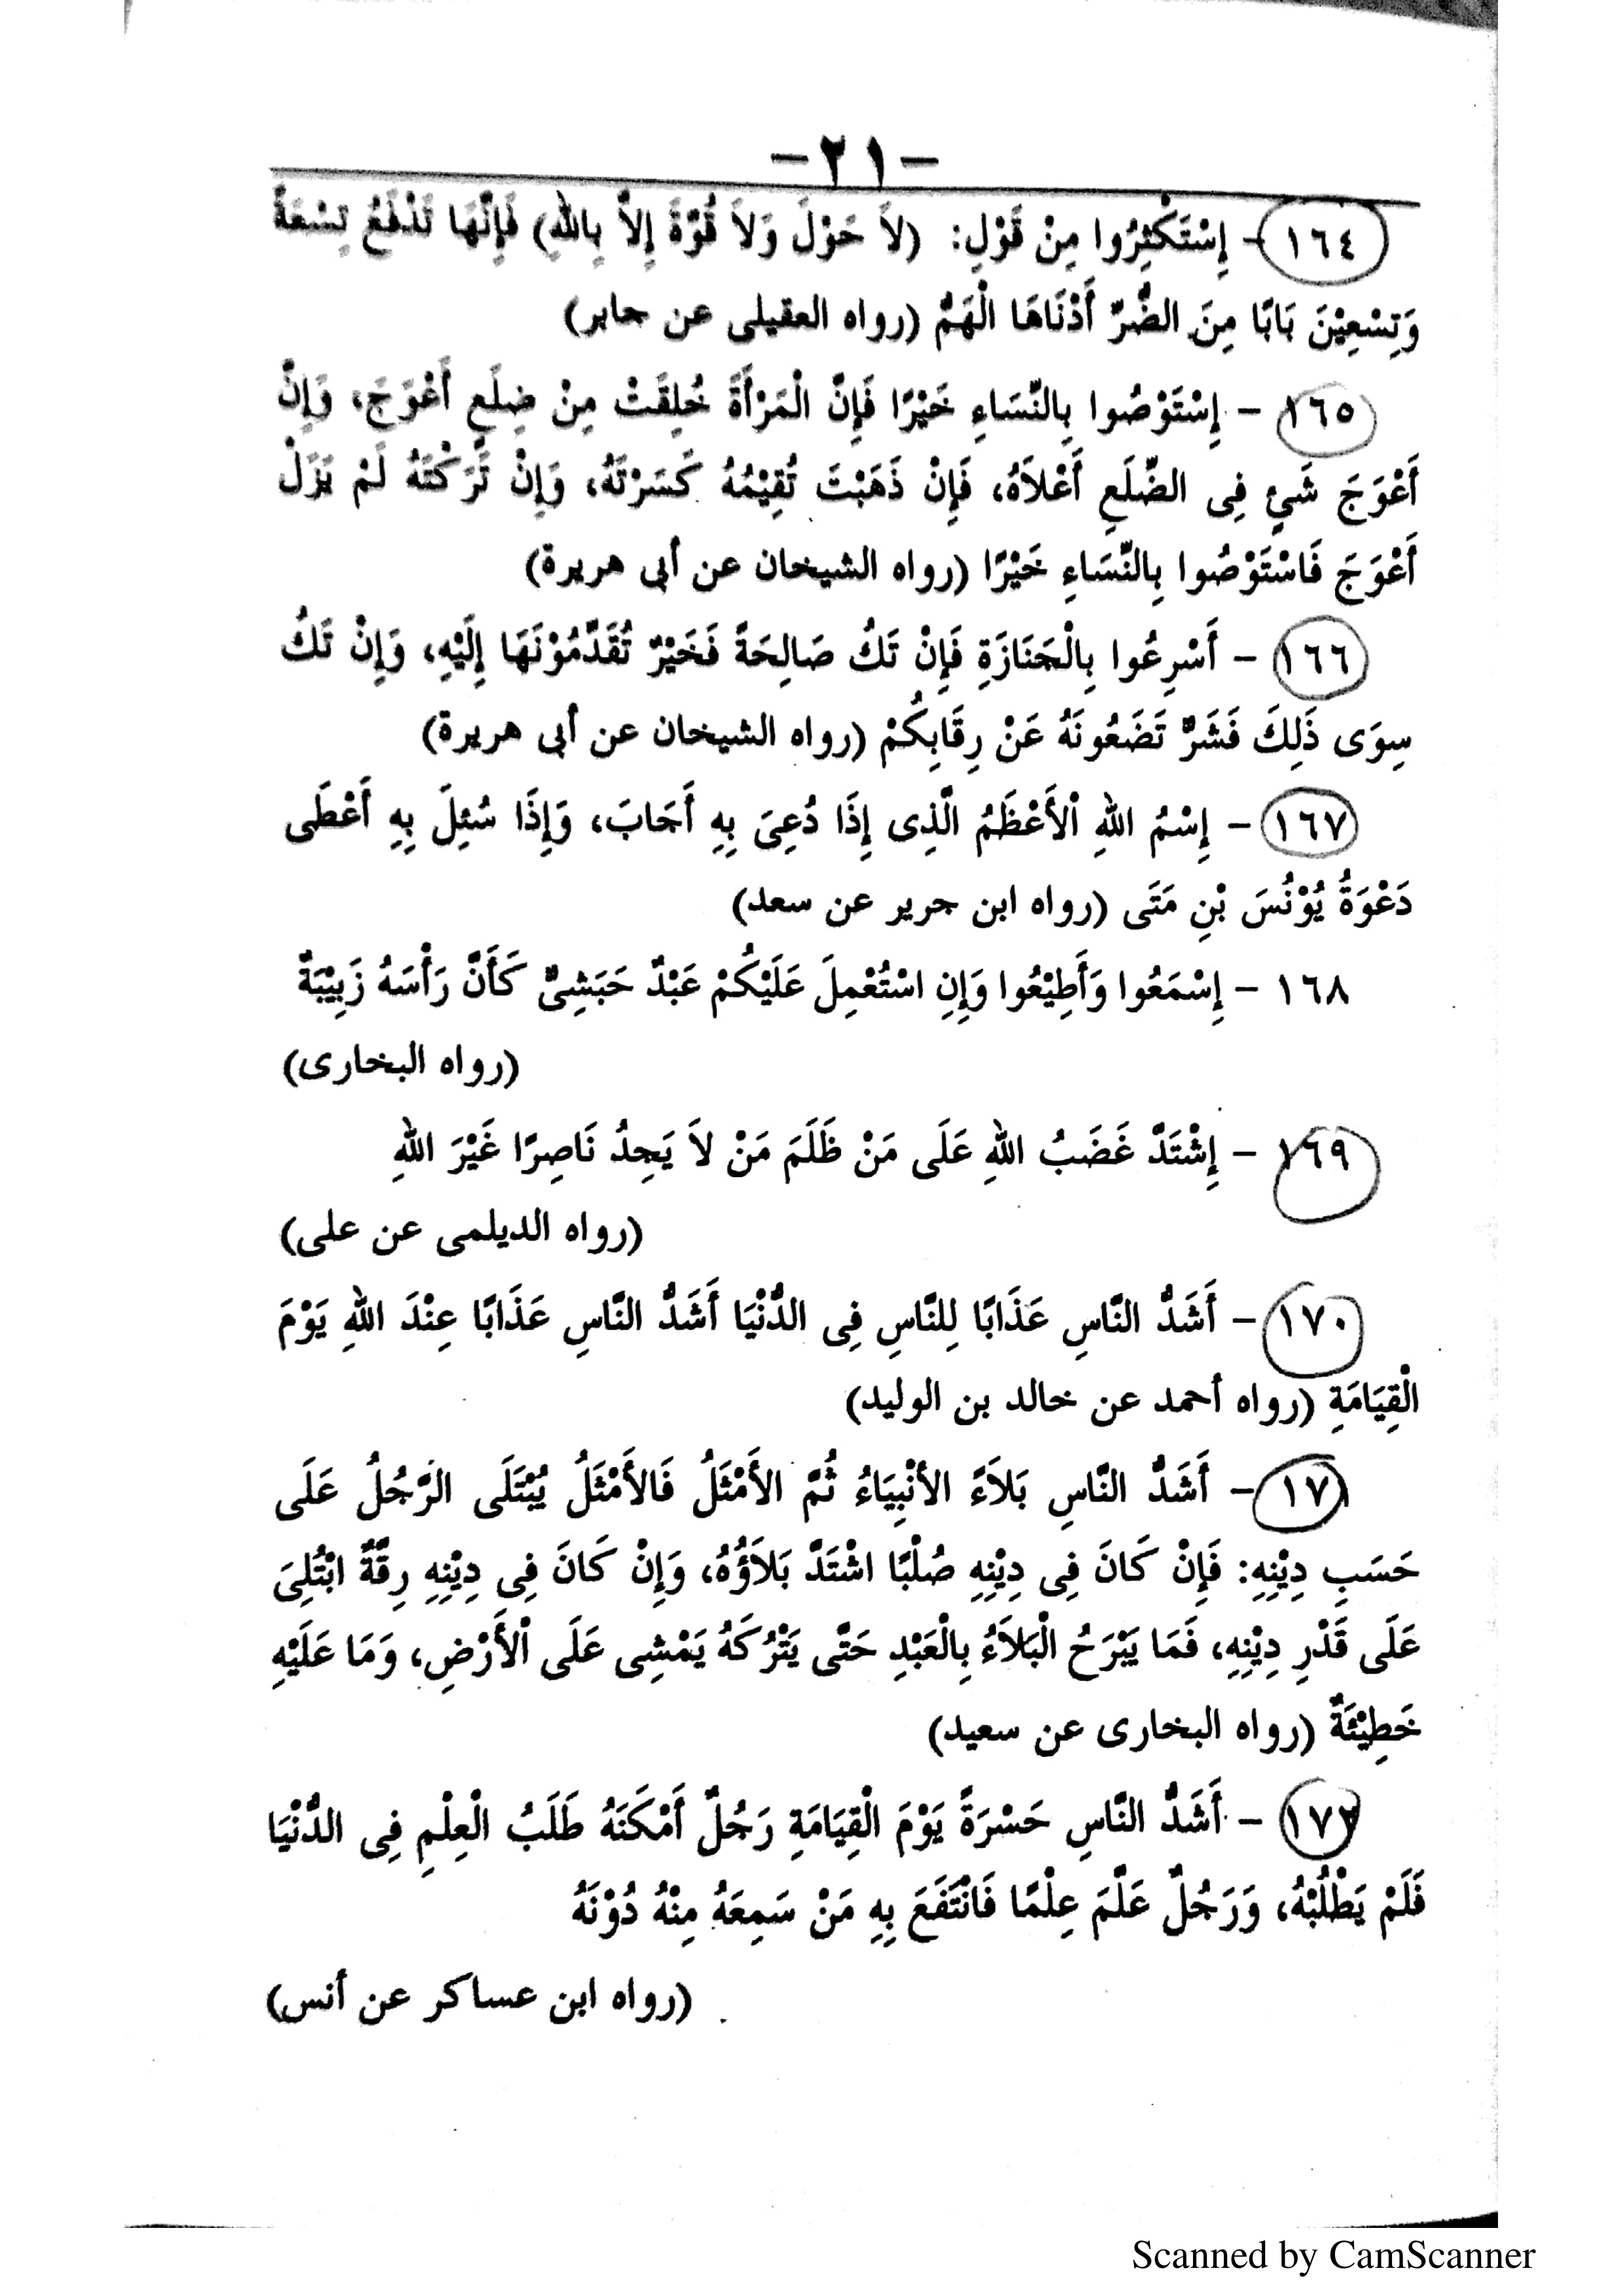 -٢١-
١٦٤ - إِسْتَكْثِرُوا مِنْ قَوْلِ: (لاَ حَوْلَ وَلاَ قُوَّةَ إِلاَّ بِاللهِ) فَإِنَّهَا تَدْفَعُ تِسْعَةً
وَتِسْعِيْنَ بَابًا مِنَ الضُّرِّ أَدْنَاهَا الْهَمُّ (رواه العقيلى عن جابر)
١٦٥ - إِسْتَوْصُوا بِالنِّسَاءِ خَيْرًا فَإِنَّ الْمَرْأَةَ خُلِقَتْ مِنْ ضِلَعٍ أَعْوَجَ، وَإِنَّ
أَعْوَجَ شَيْءٍ فِى الضِّلَعِ أَعْلاَهُ، فَإِنْ ذَهَبْتَ تُقِيْمُهُ كَسَرْتَهُ، وَإِنْ تَرَكْتَهُ لَمْ يَزَلْ
أَعْوَجَ فَاسْتَوْصُوا بِالنِّسَاءِ خَيْرًا (رواه الشيخان عن أبى هريرة)
١٦٦ - أَسْرِعُوا بِالْجَنَازَةِ فَإِنْ تَكُ صَالِحَةً فَخَيْرٌ تُقَدِّمُوْنَهَا إِلَيْهِ، وَإِنْ تَكُ
سِوَى ذَلِكَ فَشَرٌّ تَضَعُونَهُ عَنْ رِقَابِكُمْ (رواه الشيخان عن أبى هريرة)
١٦٧ - إِسْمُ اللهِ الْأَعْظَمُ الَّذِى إِذَا دُعِىَ بِهِ أَجَابَ، وَإِذَا سُئِلَ بِهِ أَعْطَى
دَعْوَةُ يُوْنُسَ بْنِ مَتَى (رواه ابن جرير عن سعد)
١٦٨ - إِسْمَعُوا وَأَطِيْعُوا وَإِنِ اسْتُعْمِلَ عَلَيْكُمْ عَبْدٌ حَبَشِىٌّ كَأَنَّ رَأْسَهُ زَبِيْبَةٌ
(رواه البخارى)
١٦٩ - إِشْتَدَّ غَضَبُ اللهِ عَلَى مَنْ ظَلَمَ مَنْ لاَ يَجِدُ نَاصِرًا غَيْرَ اللهِ
(رواه الديلمى عن على)
١٧٠ - أَشَدُّ النَّاسِ عَذَابًا لِلنَّاسِ فِى الدُّنْيَا أَشَدُّ النَّاسِ عَذَابًا عِنْدَ اللهِ يَوْمَ
الْقِيَامَةِ (رواه أحمد عن خالد بن الوليد)
١٧١ - أَشَدُّ النَّاسِ بَلاَءً الأَنْبِيَاءُ ثُمَّ الأَمْثَلُ فَالأَمْثَلُ يُبْتَلَى الرَّجُلُ عَلَى
حَسَبِ دِيْنِهِ: فَإِنْ كَانَ فِى دِيْنِهِ صُلْبًا اشْتَدَّ بَلاَؤُهُ، وَإِنْ كَانَ فِى دِيْنِهِ رِقَّةٌ ابْتُلِىَ
عَلَى قَدْرِ دِيْنِهِ، فَمَا يَبْرَحُ الْبَلاَءُ بِالْعَبْدِ حَتَّى يَتْرُكَهُ يَمْشِى عَلَى الْأَرْضِ، وَمَا عَلَيْهِ
خَطِيْئَةٌ (رواه البخارى عن سعيد)
١٧٢ - أَشَدُّ النَّاسِ حَسْرَةً يَوْمَ الْقِيَامَةِ رَجُلٌ أَمْكَنَهُ طَلَبُ الْعِلْمِ فِى الدُّنْيَا
فَلَمْ يَطْلُبْهُ، وَرَجُلٌ عَلَّمَ عِلْمًا فَانْتَفَعَ بِهِ مَنْ سَمِعَهُ مِنْهُ دُوْنَهُ
(رواه ابن عساكر عن أنس)
Scanned by CamScanner